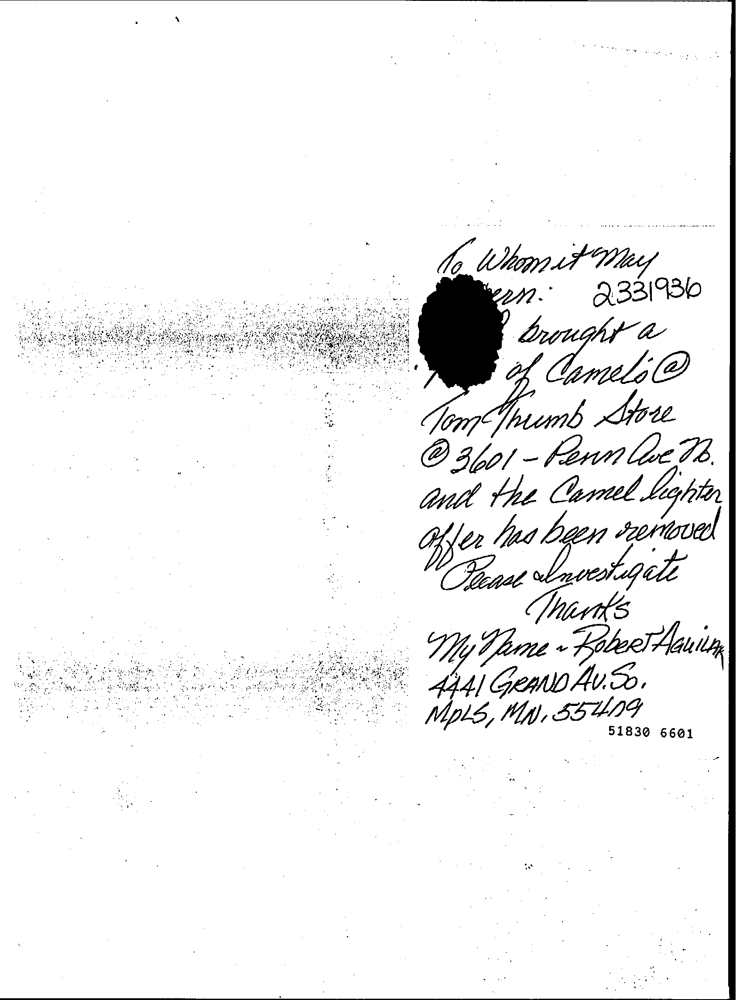 To Whom it May
ern: 2331936
brought a
of Camel's @
Tom Thumb Store
@ 3601 - Penn Ave No.
and the Camel lighter
offer has been removed
Please Investigate
Thanks
My Name ~ Robert Aguilar
4441 GRAND AV. So.
MPLS, MN. 55409
51830 6601